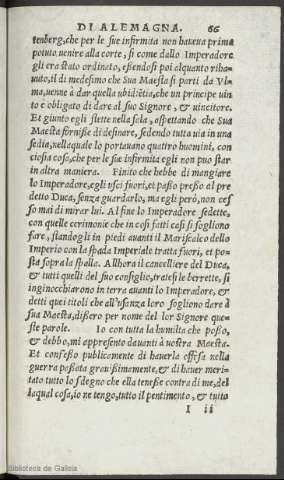 DI ALEMAGNA. 66
tenberg, che per le sue infirmita non haueua prima
potuto uenire alla corte, si come dallo Imperadore
gli era stato ordinato, essendosi poi alquanto riha-
uuto, il di medesimo che Sua Maesta si parti da Vl-
ma, uenne à dar quella ubidiẽtia, che un principe uin
to è obligato di dare al suo Signore, & uincitore.
Et giunto egli stette nella sala, aspettando che Sua
Maesta fornisse di desinare, sedendo tutta uia in una
sedia, nella quale lo portauano quattro huomini, con
ciosia cosa, che per le sue infirmita egli non puo star
in altra maniera. Finito che hebbe di mangiare
lo Imperadore, egli usci fuori, et passò presso al pre
detto Duca, senza guardarlo, ma egli però, non ces
sò mai di mirar lui. Al fine lo Imperadore sedette,
con quelle cerimonie che in cosi fatti casi si sogliono
fare, standogli in piedi auanti il Mariscalco dello
Imperio con la spada Imperiale tratta fuori, et po-
sta sopra la spalla. Allhora il cancelliere del Duca,
& tutti quelli del suo consiglio, tratesi le berrette, si
inginocchiarono in terra auanti lo Imperadore, &
detti quei titoli che all'usenza loro sogliono dare à
sua Maesta, dissero per nome del lor Signore que-
ste parole. Io con tutta la humilta che posso,
& debbo, mi appresento dauanti à uostra Maesta.
Et confesso publicamente di hauerla offesa nella
guerra passata grauissimamente, & di hauer meri-
tato tutto lo sdegno che ella tenesse contra di me, del
laqual cosa, io ne tengo, tutto il pentimento, & tutto
I ii
Biblioteca de Galicia